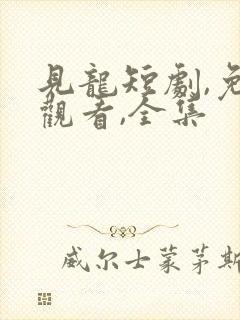 見龍短劇,免
觀看,全集
威尔士蒙茅斯